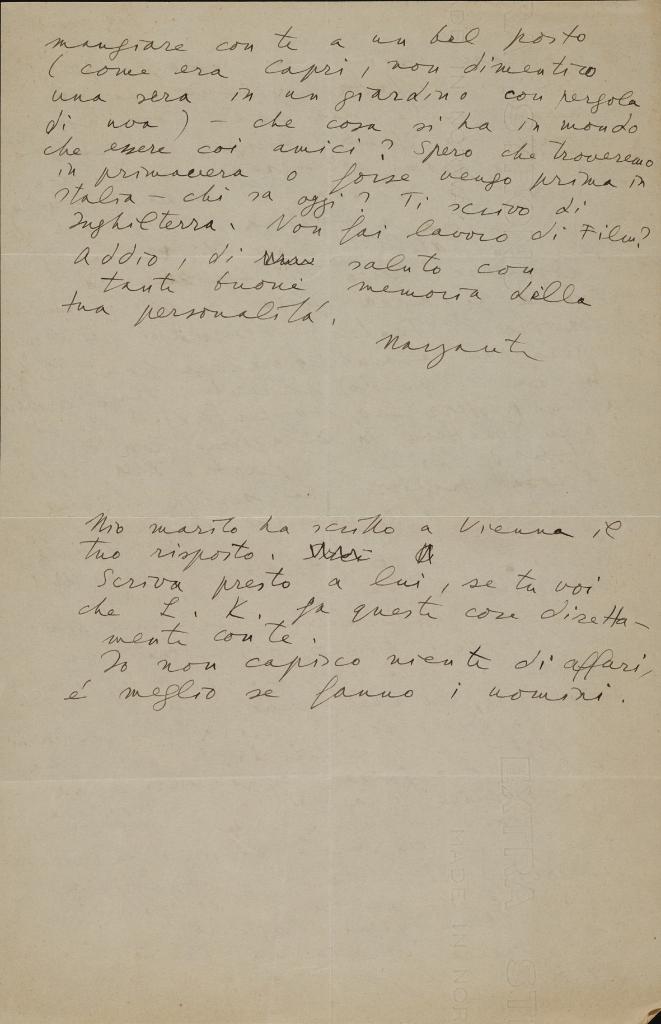 mangiare con te a un bel posto
(come era Capri, non dimentico
una sera in un giardino con pergola
di uva) – che cosa si ha in mondo
che essere coi amici? Spero che troveremo
in primavera o forse vengo prima in
Italia – chi sa oggi? Ti scrivo di
Inghilterra. Non fai lavoro di Film?
Addio, di saluto con
tante buone memoria della
tua personalitá.
Margarete
Mio marito ha scritto a Vienna il
tuo risposto.
Scriva presto a lui, se tu voi
che L. K. fa queste cose diretta-
mente con te.
Io non capisco niente di affari,
é meglio se fanno i uomini.
EXTRA ST
MADE IN NOR